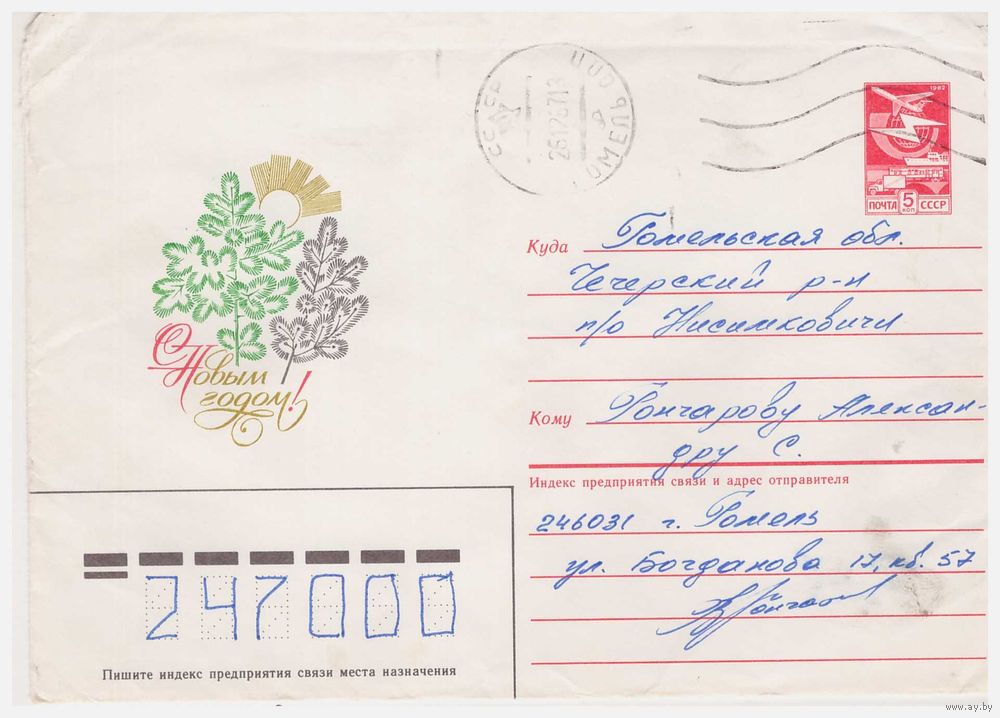 СССР
ГОМЕЛЬ
1982
ПОЧТА 5 КОП СССР
Куда Гомельская обл.
Чечерский р-н
п/о Нисимковичи
С Новым
годом!
Кому Гончарову Алексан-
дру С.
Индекс предприятия связи и адрес отправителя
246031 г. Гомель
ул. Богданова 17, кв. 57
247000
Пишите индекс предприятия связи места назначения
www.ay.by